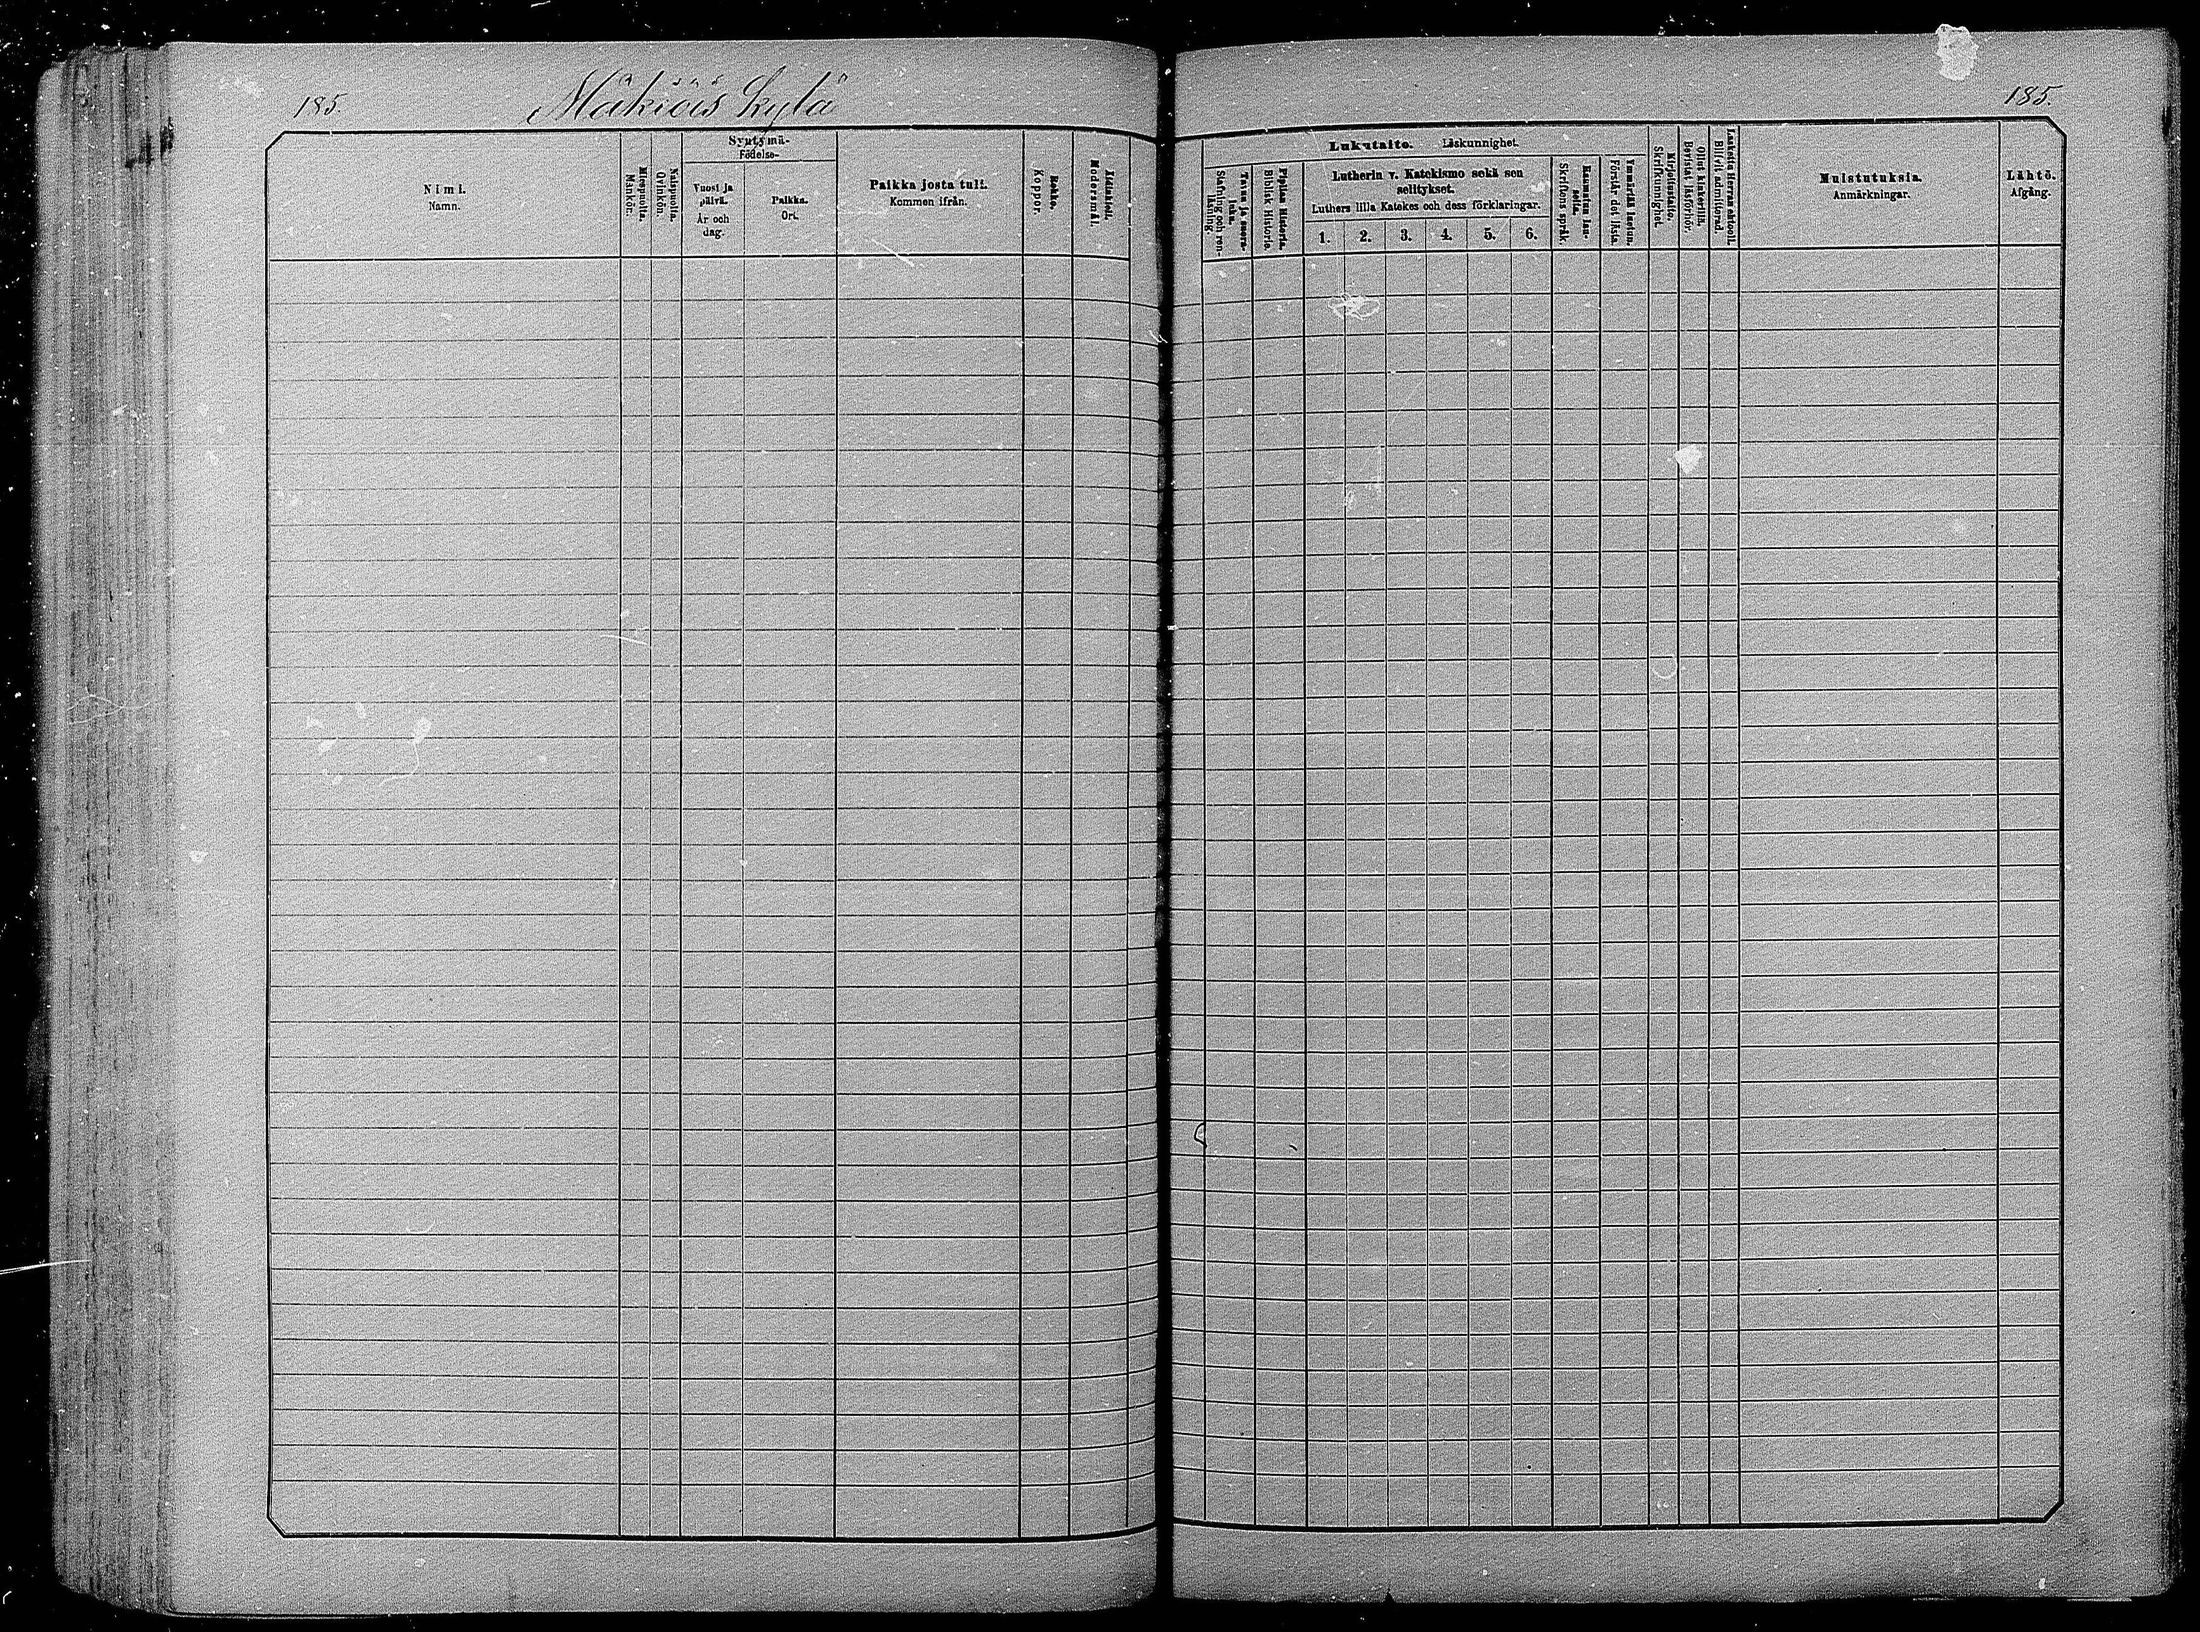 185. Mäkiöis kylä
Nimi.
Namn.
Miespuolia.
Mankön.
Naispuolia.
Qvinkön.
Syntymä-
Födelse-
Vuosi ja
päivä.
År och
dag.
Paikka.
Ort.
Paikka josta tuli.
Kommen ifrån.
Rokko.
Koppor.
Äidinkieli.
Modersmål.
185.
Lukutaito. Läskunnighet.
Tavaa ja suora-
luku.
Stafning och ren-
läsning.
Piplian Historia.
Biblisk Historia.
Lutherin v. Katekismo sekä sen
selitykset.
Luthers lilla Katekes och dess förklaringar.
1. 2. 3. 4. 5. 6.
Raamatun lau-
seita.
Skriftens språk.
Ymmärtää luetun.
Förstår det lästa.
Kirjoitustaito.
Skrifkunnighet.
Ollut kinkerillä.
Bevistat läsförhör.
Laskettu Herran ehtooll.
Blifvit admitterad.
Muistutuksia.
Anmärkningar.
Lähtö.
Afgång.